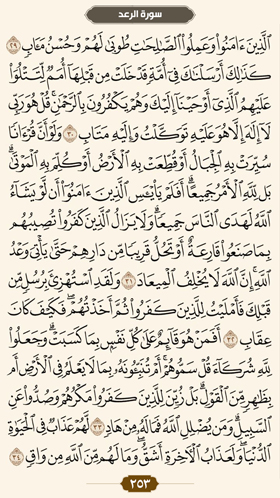 سورة الرعد
ٱلَّذِينَ ءَامَنُوا۟ وَعَمِلُوا۟ ٱلصَّٰلِحَٰتِ طُوبَىٰ لَهُمْ وَحُسْنُ مَـَٔابٍ ٢٩
كَذَٰلِكَ أَرْسَلْنَٰكَ فِىٓ أُمَّةٍ قَدْ خَلَتْ مِن قَبْلِهَآ أُمَمٌ لِّتَتْلُوَا۟
عَلَيْهِمُ ٱلَّذِىٓ أَوْحَيْنَآ إِلَيْكَ وَهُمْ يَكْفُرُونَ بِٱلرَّحْمَٰنِ ۚ قُلْ هُوَ رَبِّى
لَآ إِلَٰهَ إِلَّا هُوَ عَلَيْهِ تَوَكَّلْتُ وَإِلَيْهِ مَتَابِ ٣٠ وَلَوْ أَنَّ قُرْءَانًا
سُيِّرَتْ بِهِ ٱلْجِبَالُ أَوْ قُطِّعَتْ بِهِ ٱلْأَرْضُ أَوْ كُلِّمَ بِهِ ٱلْمَوْتَىٰ ۗ
بَل لِّلَّهِ ٱلْأَمْرُ جَمِيعًا ۗ أَفَلَمْ يَا۟يْـَٔسِ ٱلَّذِينَ ءَامَنُوٓا۟ أَن لَّوْ يَشَآءُ
ٱللَّهُ لَهَدَى ٱلنَّاسَ جَمِيعًا ۗ وَلَا يَزَالُ ٱلَّذِينَ كَفَرُوا۟ تُصِيبُهُم
بِمَا صَنَعُوا۟ قَارِعَةٌ أَوْ تَحُلُّ قَرِيبًا مِّن دَارِهِمْ حَتَّىٰ يَأْتِىَ وَعْدُ
ٱللَّهِ ۚ إِنَّ ٱللَّهَ لَا يُخْلِفُ ٱلْمِيعَادَ ٣١ وَلَقَدِ ٱسْتُهْزِئَ بِرُسُلٍ مِّن
قَبْلِكَ فَأَمْلَيْتُ لِلَّذِينَ كَفَرُوا۟ ثُمَّ أَخَذْتُهُمْ ۖ فَكَيْفَ كَانَ
عِقَابِ ٣٢ أَفَمَنْ هُوَ قَآئِمٌ عَلَىٰ كُلِّ نَفْسٍۭ بِمَا كَسَبَتْ ۗ وَجَعَلُوا۟
لِلَّهِ شُرَكَآءَ قُلْ سَمُّوهُمْ ۚ أَمْ تُنَبِّـُٔونَهُۥ بِمَا لَا يَعْلَمُ فِى ٱلْأَرْضِ أَم
بِظَٰهِرٍ مِّنَ ٱلْقَوْلِ ۗ بَلْ زُيِّنَ لِلَّذِينَ كَفَرُوا۟ مَكْرُهُمْ وَصُدُّوا۟ عَنِ
ٱلسَّبِيلِ ۗ وَمَن يُضْلِلِ ٱللَّهُ فَمَا لَهُۥ مِنْ هَادٍ ٣٣ لَّهُمْ عَذَابٌ فِى ٱلْحَيَوٰةِ
ٱلدُّنْيَا ۖ وَلَعَذَابُ ٱلْأَخِرَةِ أَشَقُّ ۖ وَمَا لَهُم مِّنَ ٱللَّهِ مِن وَاقٍ ٣٤
٢٥٣